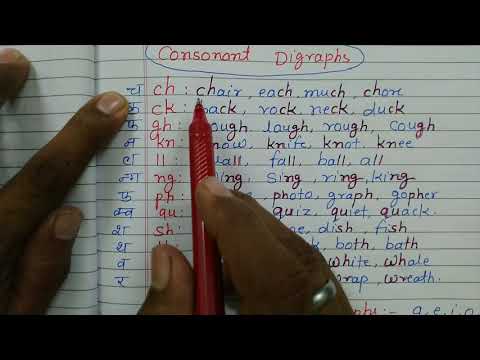 Consonant Digraphs
च ch : chair, each, much, chore
क ck : back, rock, neck, duck
फ gh : laugh, rough, cough
न kn : know, knife, knot, knee
ll : fall, ball, all
ng : sing, ring, king
फ ph : photo, graph, gopher
क्व qu : quiz, quiet, quack.
श sh : dish, fish
थ both, bath
व white, whale
र wrap, wreath.
:- a, e, i, o